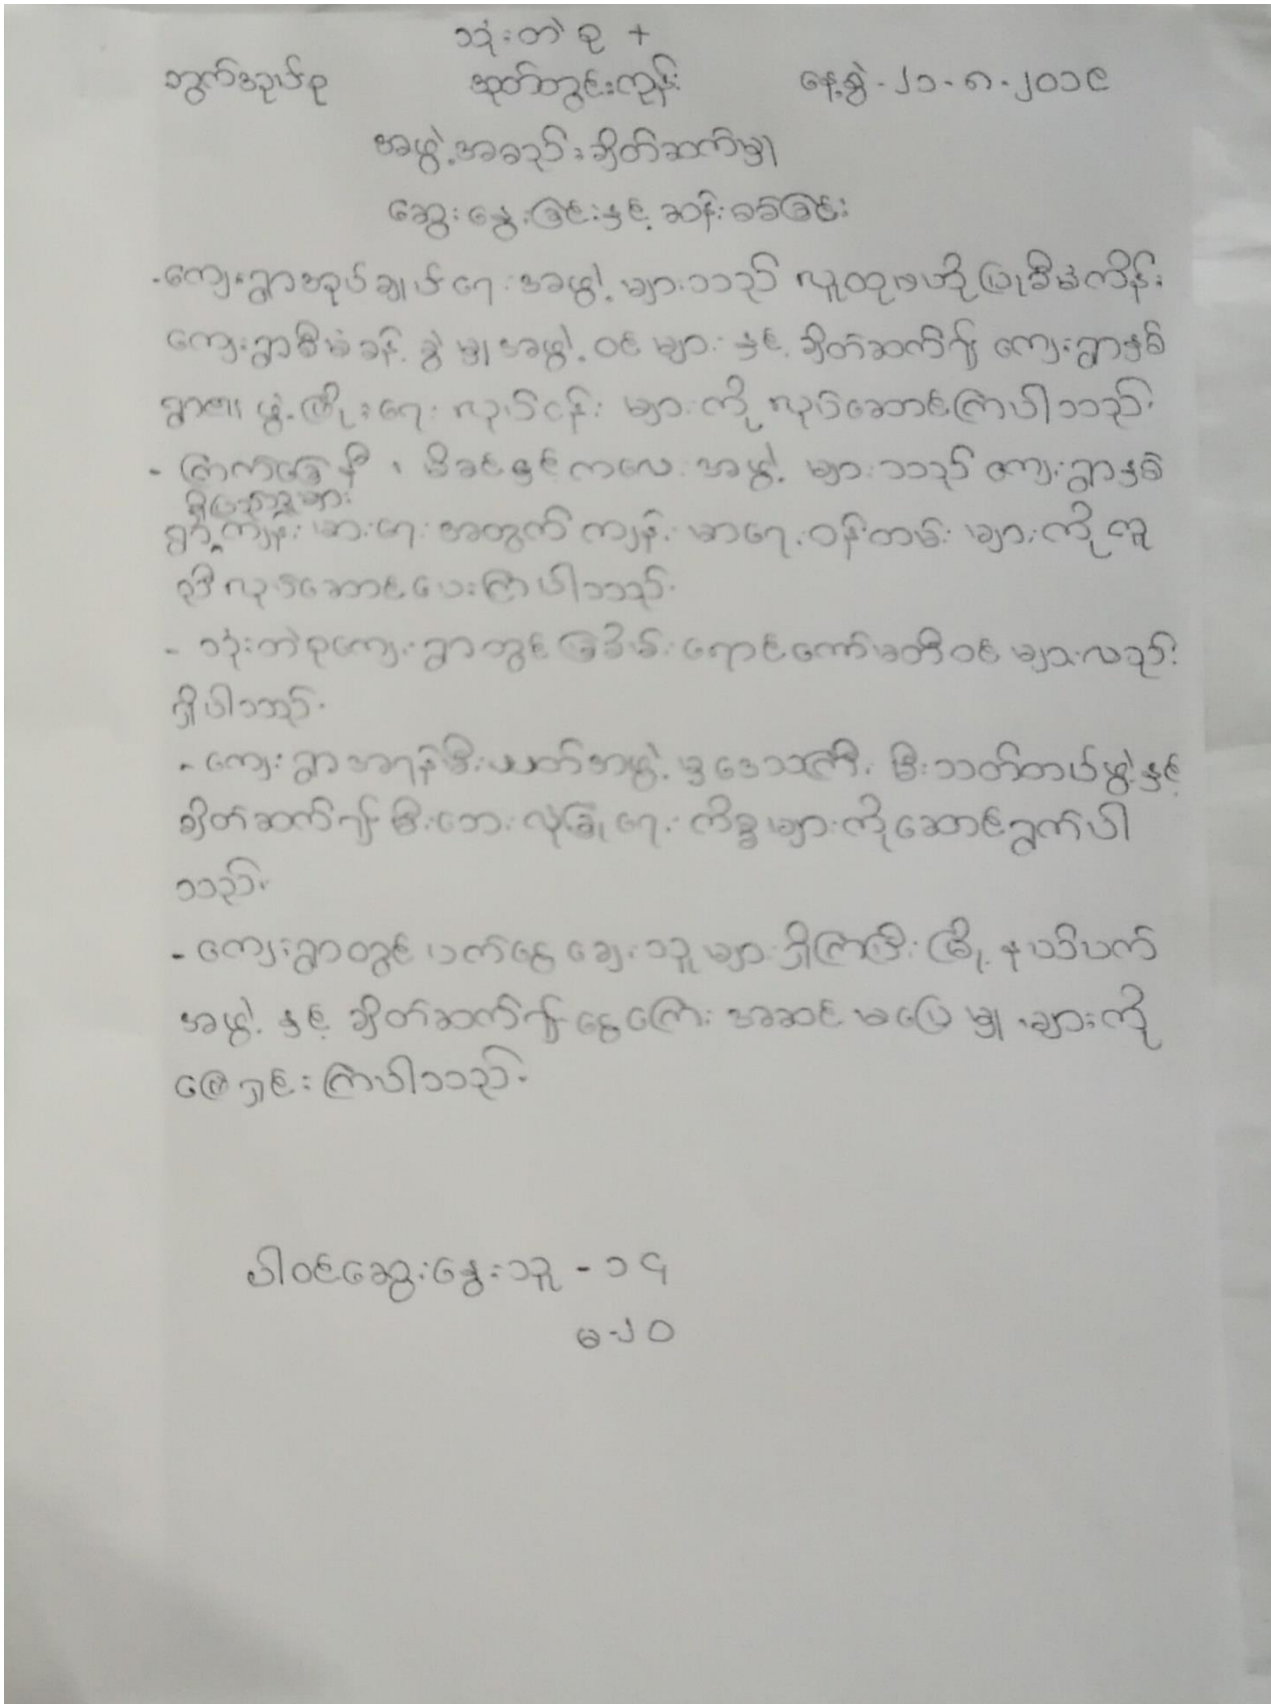 သုံးတဲစု +
ဘွက်ဒဥယ်စု အုတ်တွင်းကုန်း နေ့စွဲ - ၂၁ - ၈ - ၂၀၁၉
အဖွဲ့အစည်းချိတ်ဆက်မှု
ဆွေးနွေးခြင်းနှင့် ဆန်းစစ်ခြင်း
-ကျေးရွာအုပ်ချုပ်ရေးအဖွဲ့များသည် လူထုဗဟိုပြုစီမံကိန်း
ကျေးရွာစီမံခန့်ခွဲမှုအဖွဲ့ဝင်များနှင့် ချိတ်ဆက်၍ ကျေးရွာနှစ်
ရွာ၏ ဖွံ့ဖြိုးရေးလုပ်ငန်းများကို လုပ်ဆောင်ကြပါသည်။
- ကြက်ခြေနီ ၊ မိခင်နှင့်ကလေးအဖွဲ့များသည် ကျေးရွာနှစ်
ရွာ ကျန်းမာရေးအတွက် ကျန်းမာရေးဝန်ထမ်းများကို ကူ
ညီလုပ်ဆောင်ပေးကြပါသည်။
- သုံးတဲစုကျေးရွာတွင် မြစိမ်းရောင်ကော်မတီဝင်များလည်း
ရှိပါသည်။
- ကျေးရွာအရန်မီးသတ်အဖွဲ့မှ ဒေသကြီး မီးသတ်တပ်ဖွဲ့နှင့်
ချိတ်ဆက်၍ မီးဘေးလုံခြုံရေးကိစ္စများကိုဆောင်ရွက်ပါ
သည်။
- ကျေးရွာတွင် ပက်ငွေချေးသူများရှိကြပြီး မြို့နယ်ပက်
အဖွဲ့နှင့် ချိတ်ဆက်၍ ငွေကြေးအဆင်မပြေမှုများကို
ဖြေရှင်းကြပါသည်။
ပါဝင်ဆွေးနွေးသူ - ၁၄
မ-၂၀